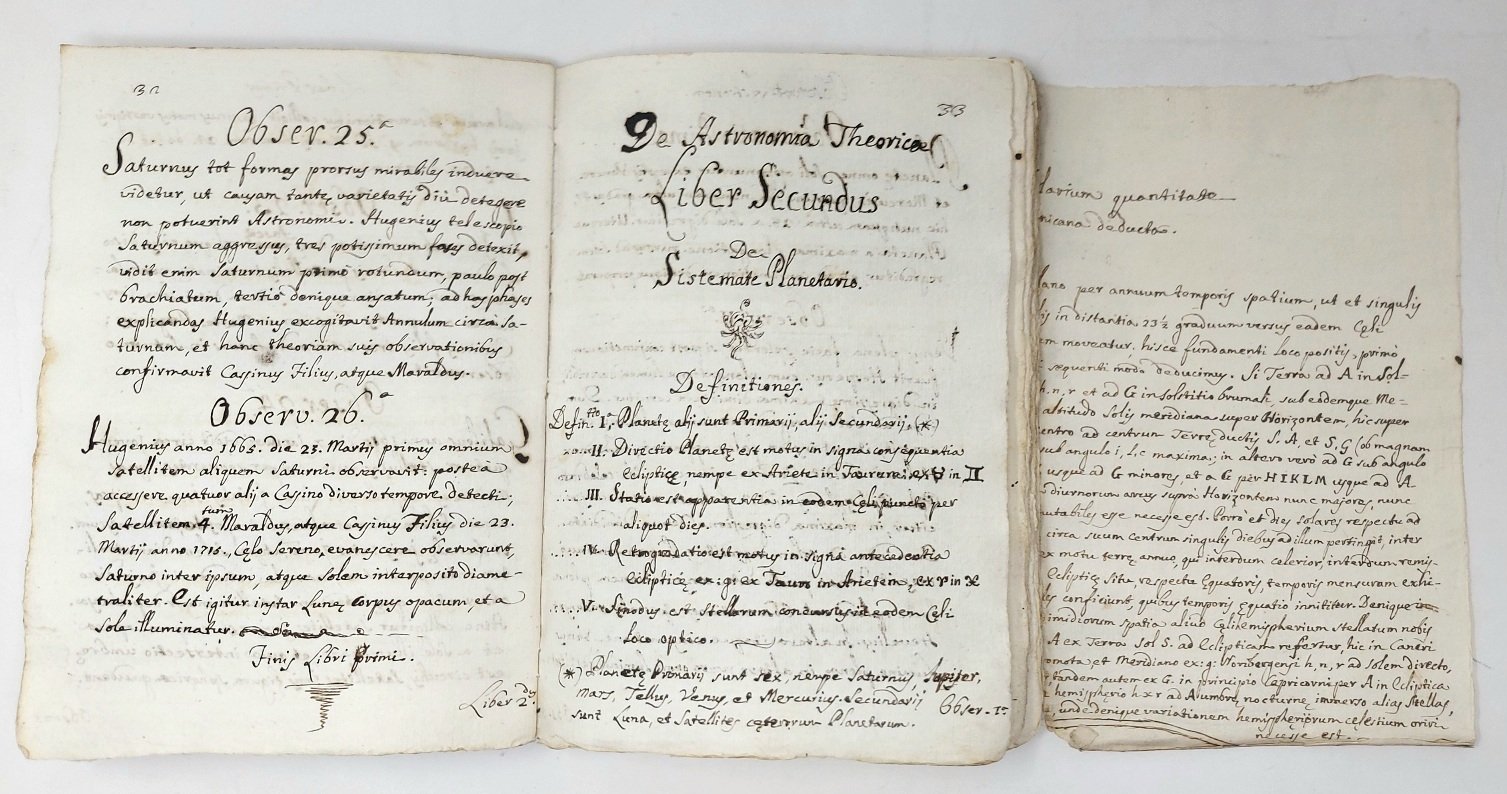 32
Obser. 25.ª
Saturnus tot formas prorsus mirabiles induere
videtur, ut causam tantę varietatis diù detegere
non potuerint Astronomi. Hugenius telescopio
Saturnum aggressus, tres potissimum fases detexit,
vidit enim Saturnum primò rotundum, paulo post
brachiatum, tertiò denique ansatum; ad has phases
explicandas Hugenius excogitavit Annulum circa Sa-
turnum, et hanc theoriam suis observationibus
confirmavit Cassinus Filius, atque Maraldus.
Observ. 26.ª
Hugenius anno 1665. die 25. Martij primus omnium
Satellitem aliquem Saturni observavit: postea
accessere quatuor alij a Cassino diverso tempore detecti;
Satellitem 4.tum Maraldus, atque Cassinus Filius die 23.
Martij anno 1715., Cęlo sereno, evanescere observarunt,
Saturno inter ipsum, atque Solem interposito diame-
traliter. Est igitur instar Lunę corpus opacum, et a
Sole illuminatur.
Finis Libri primi.
Liber 2.dus
33
De Astronomia Theorica
Liber Secundus
De
Sistemate Planetario.
Definitiones.
Defin.tio I.ª Planetę alij sunt Primarij, alij Secundarij. (*)
II. Directio Planetę est motus in signa consequentia
Eclipticę nempe ex Ariete in Taurum; ex ♉ in ♊
III. Statio est apparentia in eodem Cęli puncto per
aliquot dies.
IV. Retrogradatio est motus in signa antecedentia
Eclipticę ex: g: ex Tauro in Arietem, ex ♈ in ♓
V. Sinodus est Stellarum concursus in eodem Cęli
Loco optico.
(*) Planetę Primarij sunt sex, nempe Saturnus Jupiter,
Mars, Tellus, Venus, et Mercurius. Secundarij
sunt Luna, et Satellites cęterorum Planetarum.
Obser. 1.
larium quantitate
nicana deducta.
lano per annuum temporis spatium, ut et singulis
is in distantia 23½ graduum versus eadem Cęli
em moveatur, hisce fundamenti loco positis, primò
sequenti modo deducimus. Si Terra ad A in Sol-
h, n, r et ad G in solstitio brumali, sub eodem Me-
altitudo Solis meridiana super Horizontem, hic super
entro ad centrum Terrę ductis S. A, et S, G (ob magnam
sub angulo i, L c maxima; in altero verò ad G sub angulo
usque ad G minores, et a G per HIKLM usque ad A
diurnorum arcus supra Horizontem nunc majores, nunc
utabiles esse necesse est. Porrò et dies solares respectu ad
circa suum centrum singulis diebus ad illum pertingit, inter
ex motu terrę annuo, qui interdum celerior, interdum remis-
Eclipticę situ, respectu Equatoris, temporis mensuram exhi-
conficiunt, quibus temporis Equatio innititur. Denique in
imidiorum spatia aliud Cęli hemispherium stellatum nobis
A ex Terra Sol S. ad Eclipticam refertur, hic in Cancri
omota, et Meridiano ex: g: Noribergensi h, n, r ad Solem directo,
tandem autem ex G. in principio Capricorni per A in Ecliptica
hemisphęrio h x r ad A umbrę nocturnę immerso alias stellas,
unde denique variationem hemisphęriorum cęlestium oriri
necesse est.